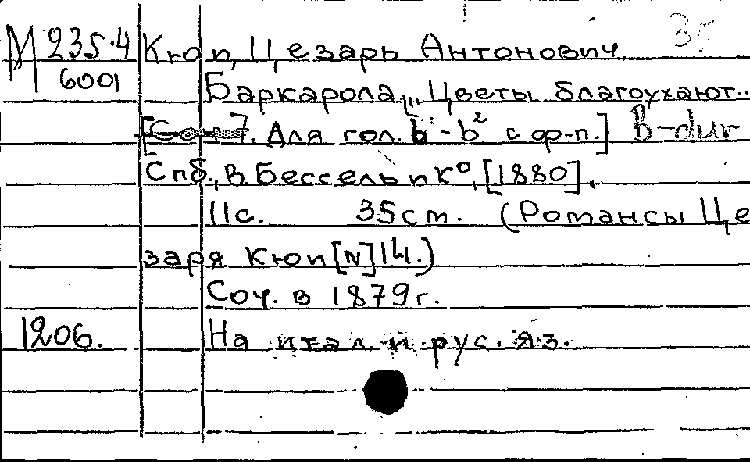 М 235.4 Кюи, Цезарь Антонович
6001 Баркарола „Цветы благоухают..
Для гол. b¹-b² с ф-п.] B-dur
Спб., В. Бессель и К⁰, [1880].
11с. 35см. (Романсы Це
заря Кюи [N] 14.)
Соч. в 1879г.
1206. На итал. и рус. яз.